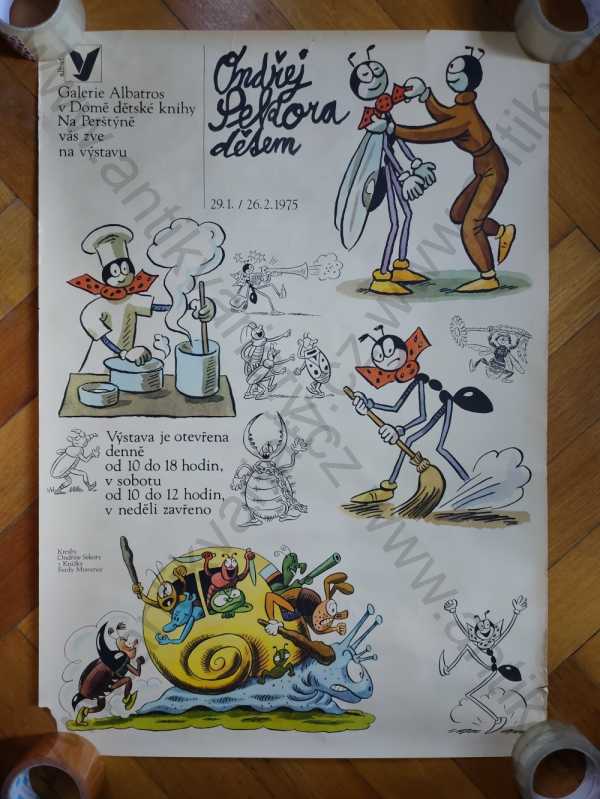 albatros
Galerie Albatros
v Domě dětské knihy
Na Perštýně
vás zve
na výstavu
Ondřej
Sekora
dětem
29.1. / 26.2.1975
Výstava je otevřena
denně
od 10 do 18 hodin,
v sobotu
od 10 do 12 hodin,
v neděli zavřeno
Kresby
Ondřeje Sekory
z Knížky
Ferdy Mravence